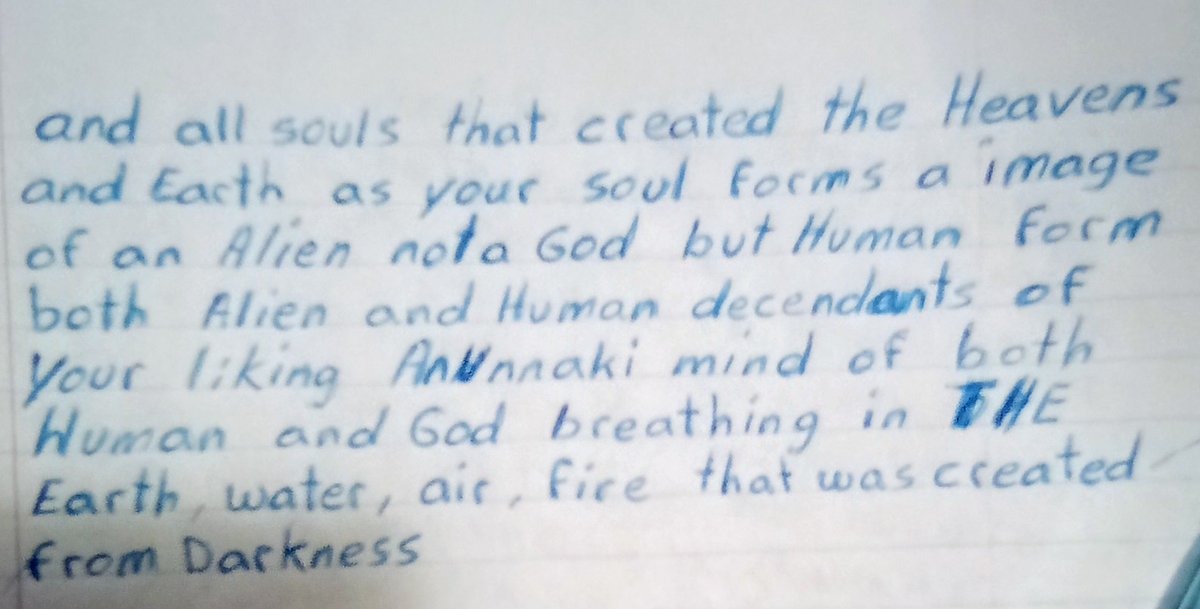 and all souls that created the Heavens
and Earth as your soul forms a image
of an Alien not a God but Human form
both Alien and Human decendants of
Your liking Anunnaki mind of both
Human and God breathing in THE
Earth, water, air, fire that was created
from Darkness